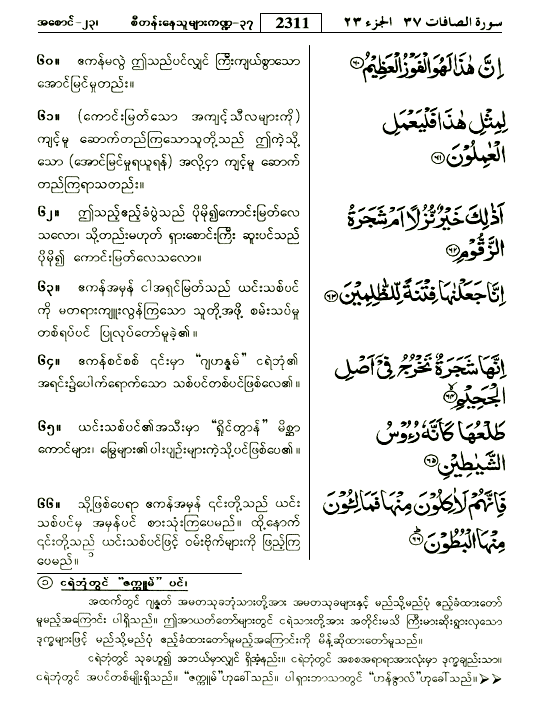 အစောင်-၂၃၊ စီတန်းနေသူများကဏ္ဍ-၃၇ 2311 سورة الصافات ٣٧ الجزء ٢٣
၆၀။ ဧကန်မလွဲ ဤသည်ပင်လျှင် ကြီးကျယ်စွာသော
အောင်မြင်မှုတည်း။
إِنَّ هٰذَا لَهُوَ الْفَوْزُ الْعَظِيْمُ ﴿٦٠﴾
၆၁။ (ကောင်းမြတ်သော အကျင့်သီလများကို)
ကျင့်မူ ဆောက်တည်ကြသောသူတို့သည် ဤကဲ့သို့
သော (အောင်မြင်မှုရယူရန်) အလို့ငှာ ကျင့်မူ ဆောက်
တည်ကြရာသတည်း။
لِمِثْلِ هٰذَا فَلْيَعْمَلِ
الْعٰمِلُوْنَ ﴿٦١﴾
၆၂။ ဤသည့်ဧည့်ခံပွဲသည် ပိုမို၍ကောင်းမြတ်လေ
သလော၊ သို့တည်းမဟုတ် ရှားစောင်းကြီး ဆူးပင်သည်
ပိုမို၍ ကောင်းမြတ်လေသလော။
اَذٰلِكَ خَيْرٌ نُّزُلًا اَمْ شَجَرَةُ
الزَّقُّوْمِ ﴿٦٢﴾
၆၃။ ဧကန်အမှန် ငါအရှင်မြတ်သည် ယင်းသစ်ပင်
ကို မတရားကျူးလွန်ကြသော သူတို့အဖို့ စမ်းသပ်မှု
တစ်ရပ်ပင် ပြုလုပ်တော်မူခဲ့၏။
اِنَّا جَعَلْنٰهَا فِتْنَةً لِّلظّٰلِمِيْنَ ﴿٦٣﴾
၆၄။ ဧကန်စင်စစ် ၎င်းမှာ “ဂျဟန္နမ်” ငရဲဘုံ၏
အရင်း၌ပေါက်ရောက်သော သစ်ပင်တစ်ပင်ဖြစ်လေ၏။
اِنَّهَا شَجَرَةٌ تَخْرُجُ فِيْٓ اَصْلِ
الْجَحِيْمِ ﴿٦٤﴾
၆၅။ ယင်းသစ်ပင်၏အသီးမှာ “ရှိုင်တွာန်” မိစ္ဆာ
ကောင်များ၊ မြွေများ၏ပါးပျဉ်းများကဲ့သို့ပင်ဖြစ်ပေ၏။
طَلْعُهَا كَاَنَّهٗ رُءُوْسُ
الشَّيٰطِيْنِ ﴿٦٥﴾
၆၆။ သို့ဖြစ်ပေရာ ဧကန်အမှန် ၎င်းတို့သည် ယင်း
သစ်ပင်မှ အမှန်ပင် စားသုံးကြပေမည်။ ထို့နောက်
၎င်းတို့သည် ယင်းသစ်ပင်ဖြင့် ဝမ်းဗိုက်များကို ဖြည့်ကြ
ပေမည်။
فَاِنَّهُمْ لَاٰكِلُوْنَ مِنْهَا فَمَالِـُٔوْنَ
مِنْهَا الْبُطُوْنَ ﴿٦٦﴾
၁ ငရဲဘုံတွင် “ဇက္ကူမ်” ပင်၊
အထက်တွင် ဂျန္နတ် အမတသုခဘုံသားတို့အား အမတသုခများနှင့် မည်သို့မည်ပုံ ဧည့်ခံထားတော်
မူမည့်အကြောင်း ပါရှိသည်။ ဤအာယတ်တော်များတွင် ငရဲသားတို့အား အတိုင်းမသိ ကြီးမားဆိုးရွားလှသော
ဒုက္ခများဖြင့် မည်သို့မည်ပုံ ဧည့်ခံထားတော်မူမည့်အကြောင်းကို မိန့်ဆိုထားတော်မူသည်။
ငရဲဘုံတွင် သုခဟူ၍ အဘယ်မှာလျှင် ရှိအံ့နည်း။ ငရဲဘုံတွင် အစစအရာရာအားလုံးမှာ ဒုက္ခချည်းသာ။
ငရဲဘုံတွင် အပင်တစ်မျိုးရှိသည်။ “ဇက္ကူမ်”ဟုခေါ်သည်။ ပါရှားဘာသာတွင် “ဟန်ဇွာလ်”ဟုခေါ်သည်။➤➤